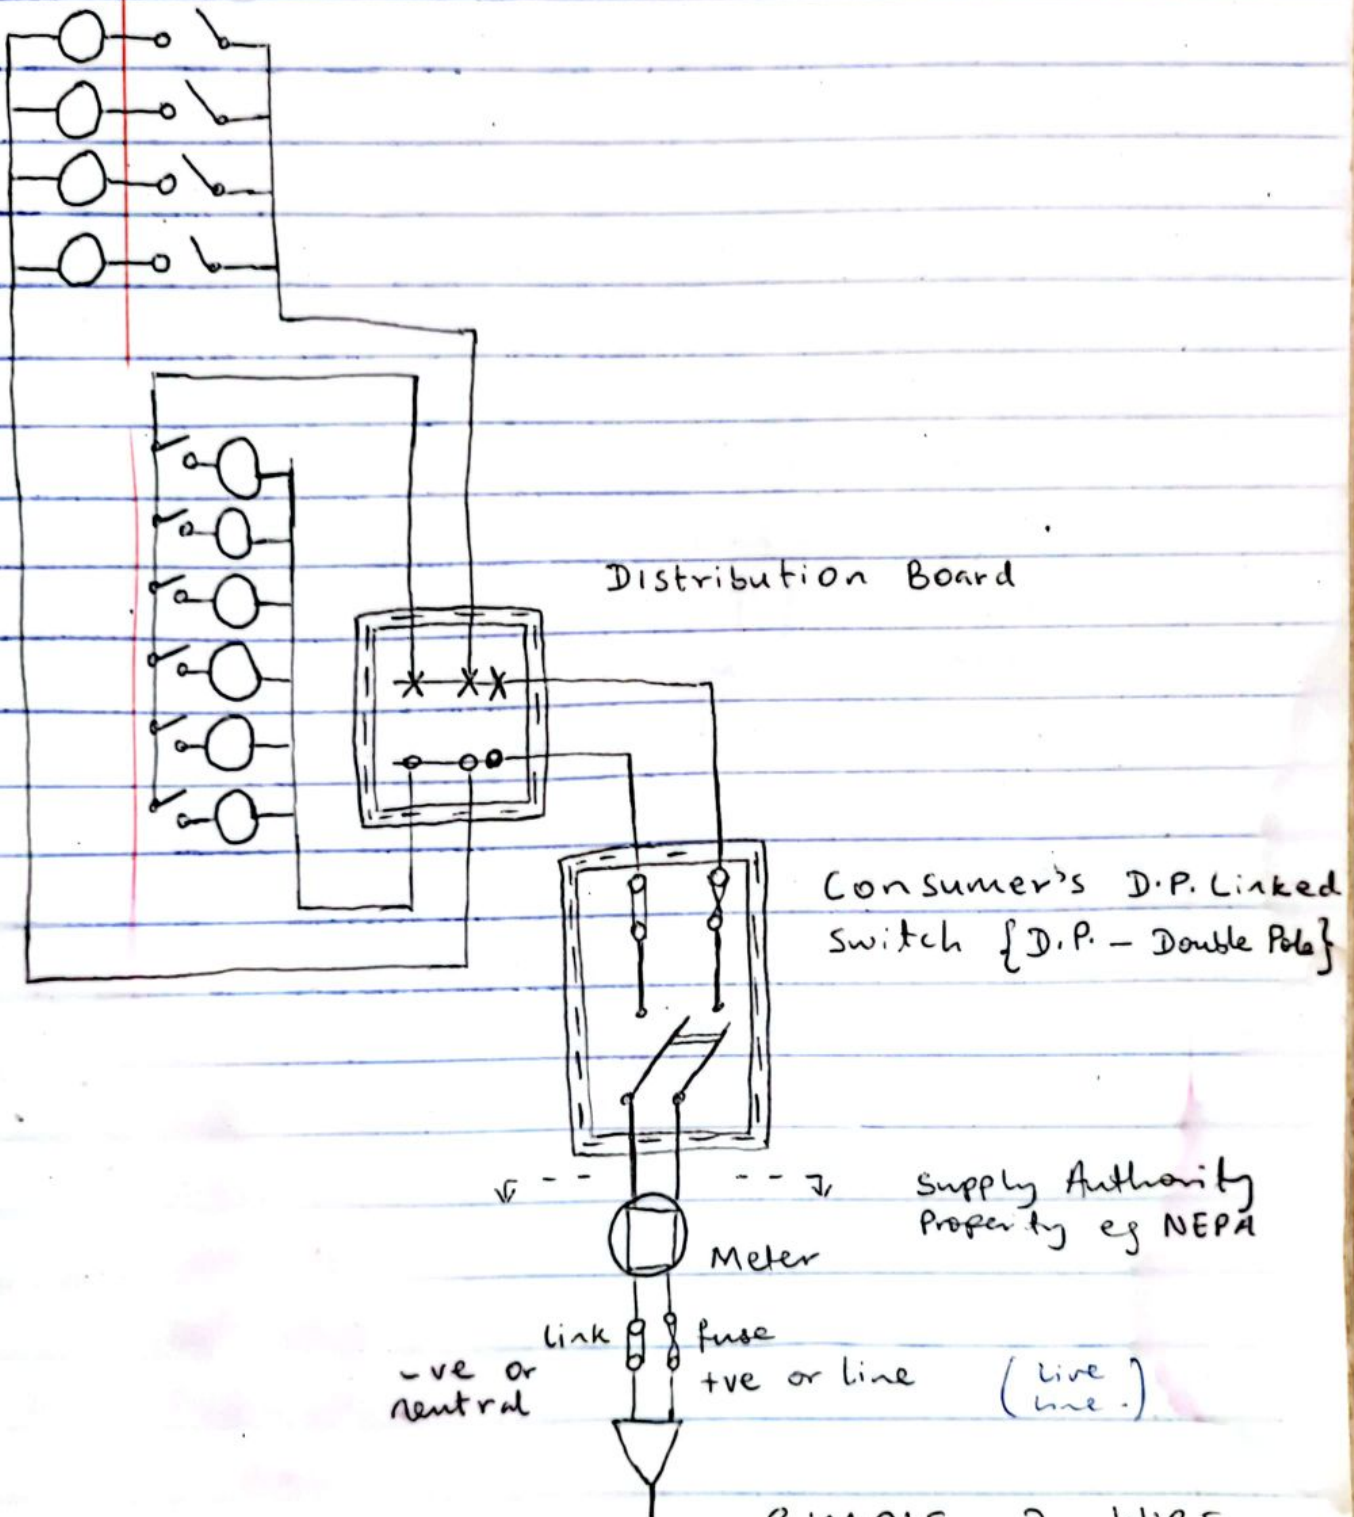 Distribution Board
Consumer's D.P. Linked
Switch {D.P. – Double Pole}
Supply Authority
Property eg NEPA
Meter
link
fuse
-ve or
neutral
+ve or line
(Live
Line.)